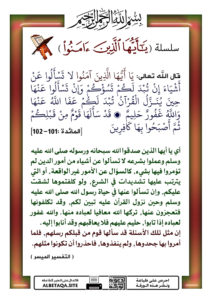 بسم الله الرحمن الرحيم
سلسلة ﴿ يَـٰٓأَيُّهَا ٱلَّذِينَ ءَامَنُوا۟ ﴾
قال الله تعالى: يَا أَيُّهَا الَّذِينَ آمَنُوا لَا تَسْأَلُوا عَنْ
أَشْيَاءَ إِنْ تُبْدَ لَكُمْ تَسُؤْكُمْ وَإِنْ تَسْأَلُوا عَنْهَا
حِينَ يُنَزَّلُ الْقُرْآنُ تُبْدَ لَكُمْ عَفَا اللَّهُ عَنْهَا
وَاللَّهُ غَفُورٌ حَلِيمٌ ۝ قَدْ سَأَلَهَا قَوْمٌ مِنْ قَبْلِكُمْ
ثُمَّ أَصْبَحُوا بِهَا كَافِرِينَ [المائدة :101- 102]
أي يا أيها الذين صدقوا الله سبحانه ورسوله صلى الله عليه
وسلم وعملوا بشرعه لا تسألوا عن أشياء من أمور الدين لم
تؤمروا فيها بشيء، كالسؤال عن الأمور غير الواقعة، أو التي
يترتب عليها تشديدات في الشرع، ولو كلفتموها لشقت
عليكم، وإن تسألوا عنها في حياة رسول الله صلى الله عليه
وسلم وحين نزول القرآن عليه تبين لكم، وقد تكلفونها
فتعجزون عنها، تركها الله معافيا لعباده منها. والله غفور
لعباده إذا تابوا، حليم عليهم فلا يعاقبهم وقد أنابوا إليه.
إن مثل تلك الأسئلة قد سألها قوم من قبلكم رسلهم، فلما
أمروا بها جحدوها، ولم ينفذوها، فاحذروا أن تكونوا مثلهم.
( التفسير الميسر )
ALBETAQA.SITE